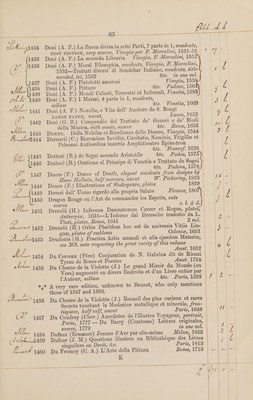 65
1434 Doni (A. F.) La Zucca divisa in setti Parti, 7 parts in 1, woodcuts,
BEST EDITION, very scarce, Vinegia per F. Marcolini, 1551-52
1435 Doni (A. F.) La seconda Libraria Vinegia, F. Marcolini, 1551
1436 Doni (A. F.) Moral Filosophia, woodcuts, Vinegia, F. Marcolini,
1552—Trattati diversi di Sendebar Indiano, woodcuts, ditto
secondod, ib, 1552 4to. in one vol.
1437 Doni (A. F.) Pistolotti amorosi Vinegia, 1558
1438 Doni (A. F.) Pitture 4to. Padova, 1564
1439 Doni (A. F.) Mondi Celesti, Terrestri et Infernali, Venetia, 1583
1440 Doni (A. F.) I Marmi, 4 parts in 1, woodcuts,
vellum 4to. Venetia, 1609
1441 Doni (A. F.) Novelle, e Vita dell' Autore da S. Bongi
LARGE PAPER, uncut, Lucca, 1852
1442 Doni (G. B.) Compendio del Trattato de' Generi e de' Modi
della Musica, with music, scarce 4to. Roma, 1635
1443 Dormio. Della Nobilta et Eccellenza delle Donne, Vinegia, 1544
1444 Dornavii (C.) Encomium Invidiæ, Cæcitatis, Neminis, Fragilis et
Palæmni Authoribus incertis Amphitheatro Epismetron
4to. Francof. 1626
1445 Dottori (B.) de Sogni secondo Aristotile 4to. Padoa, 1575
1446 Dottori (B.) Oratione al Principe di Venetia e Trattato de Sogni
4to. Padova, 1578
1447 Douce (F.) Dance of Death, elegant woodcuts from designs by
Hans Holbein, half morocco, uncut W. Pickering, 1833
1448 Douce (F.) Illustrations of Shakspeare, plates 1839
1449 Doveri dell' Uomo riguardo alla propria Salute Firenze, 1807
1450 Dragon Rouge ou l'Art de commander les Esprits, cuts
scarce
1451 Drexelii (H.) Infernus Damnatorum Carcer et Rogus, plates,
Antverpiæ, 1631—L'Inferno dal Drexelio tradotto da L.
Flori, plates, Roma, 1641 2 vol.
1452 Drexelii (H.) Orbis Phaëthon hoc est de universis Vitiis Lin-
guæ, plates of emblems Coloniæ, 1631
1453 Drudonis (H.) Practica Artis amandi et alia ejusdem Materiæ,
see MS. note respecting the great rarity of this volume
Amst. 1652
1454 Du Caveau (Père) Conjuration de N. Gabrina dit de Rienzi
Tyran de Rome et Poesies Amst. 1734
1455 Du Chesne de la Violette (J.) Le grand Miroir du Monde (en
Vers) augmenté en divers Endroits et d'un Livre entier par
l'Auteur, vellum 4to. Paris, 1595
*** A very rare edition, unknown to Brunet, who only mentions
those of 1587 and 1593.
1456 Du Chesne de la Violette (J.) Recueil des plus curieux et rares
Secrets touchant la Medecine metallique et minerale, fron-
tispiece, half calf, uncut Paris, 1648
1457 Du Coudray (Chev.) Anecdotes de l'illustre Voyageur, portrait,
Paris, 1777 — Du Barry (Comtesse) Lettres originales,
scarce, 1779 in one vol.
1458 Dufaux (Ermance) Jeanne d'Arc par elle-même Melun, 1855
1459 Dufour (J. M.) Questions illustrés ou Bibliothèque des Livres
singuliers en Droit, &c. Paris, 1813
1460 Du Fresnoy (C. A.) L'Arte della Pittura Roma, 1713
K